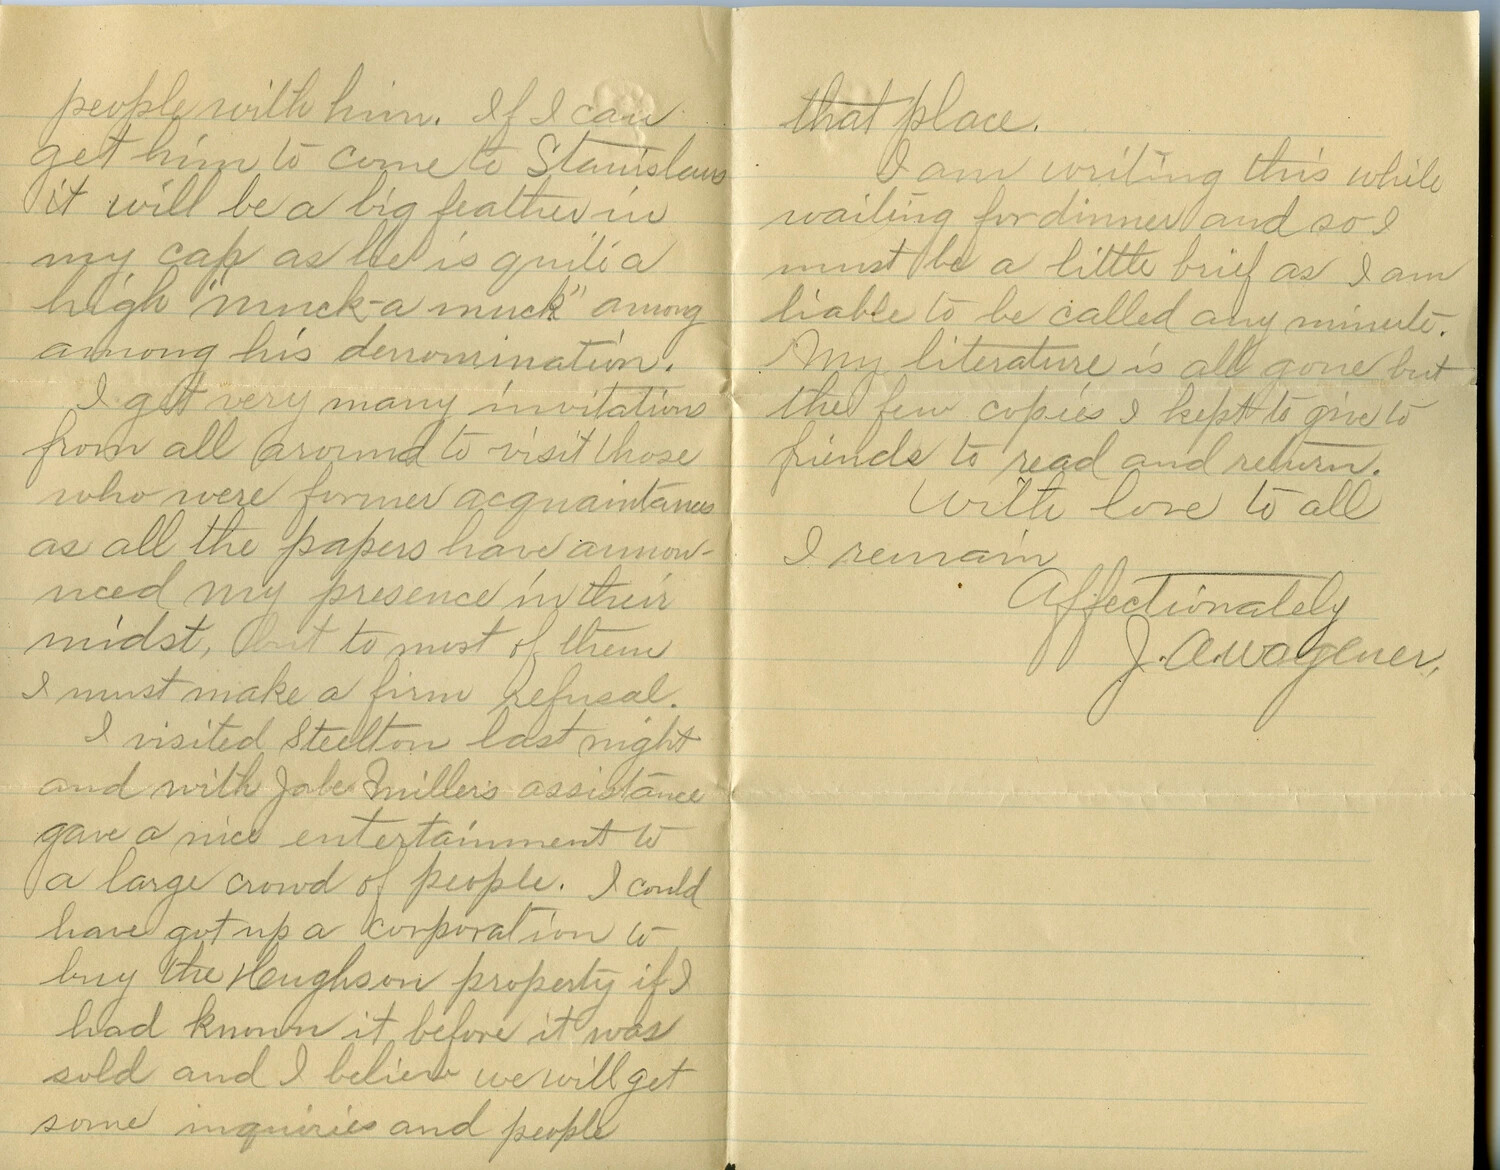 people with him. If I can
get him to come to Stanislaus
it will be a big feather in
my cap as he is quite a
high "muck-a muck" among
among his denomination.
I get very many invitations
from all around to visit those
who were former acquaintances
as all the papers have annou-
nced my presence in their
midst, but to most of them
I must make a firm refusal.
I visited Steelton last night
and with Jake Millers assistance
gave a nice entertainment to
a large crowd of people. I could
have got up a corporation to
buy the Hughson property if I
had known it before it was
sold and I believe we will get
some inquiries and people
that place.
I am writing this while
waiting for dinner and so I
must be a little brief as I am
liable to be called any minute.
My literature is all gone but
the few copies I kept to give to
friends to read and return.
With love to all
I remain
Affectionately
J. A. Wagener.